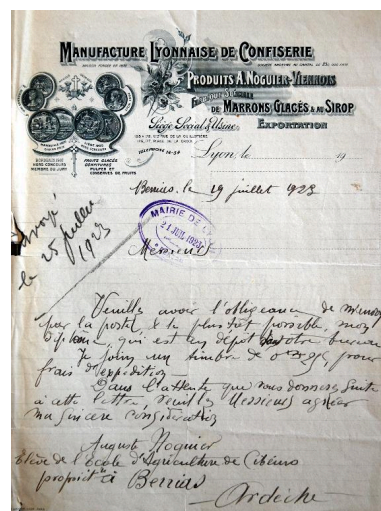 MANUFACTURE LYONNAISE DE CONFISERIE
PRODUITS A. NOGUIER-VIENNOIS
DE MARRONS GLACÉS & AU SIROP
Siège Social & Usine
EXPORTATION
TÉLÉPHONE 14-54
BORDEAUX 1907
HORS CONCOURS
MEMBRE DU JURY
FRUITS GLACÉS
CONFITURES
PULPES ET
CONSERVES DE FRUITS
Lyon, le 19
Berrias, le 19 juillet 1923
MAIRIE DE
21 JUIL 1923
Envoyé
le 25 juillet
1923
Messieurs
Veuillez avoir l'obligeance de m'envoyer
par la postal, le plus tôt possible, mon
diplome, qui est en dépot votre bureau
Je joins un timbre de pour
frais d'expédition.
Dans l'attente que vous donnerez suite
à cette lettre veuillez Messieurs agréer
ma sincère considération
Auguste Noguier
Elève de l'école d'Agriculture de Cibeins
propriét à Berrias
Ardèche